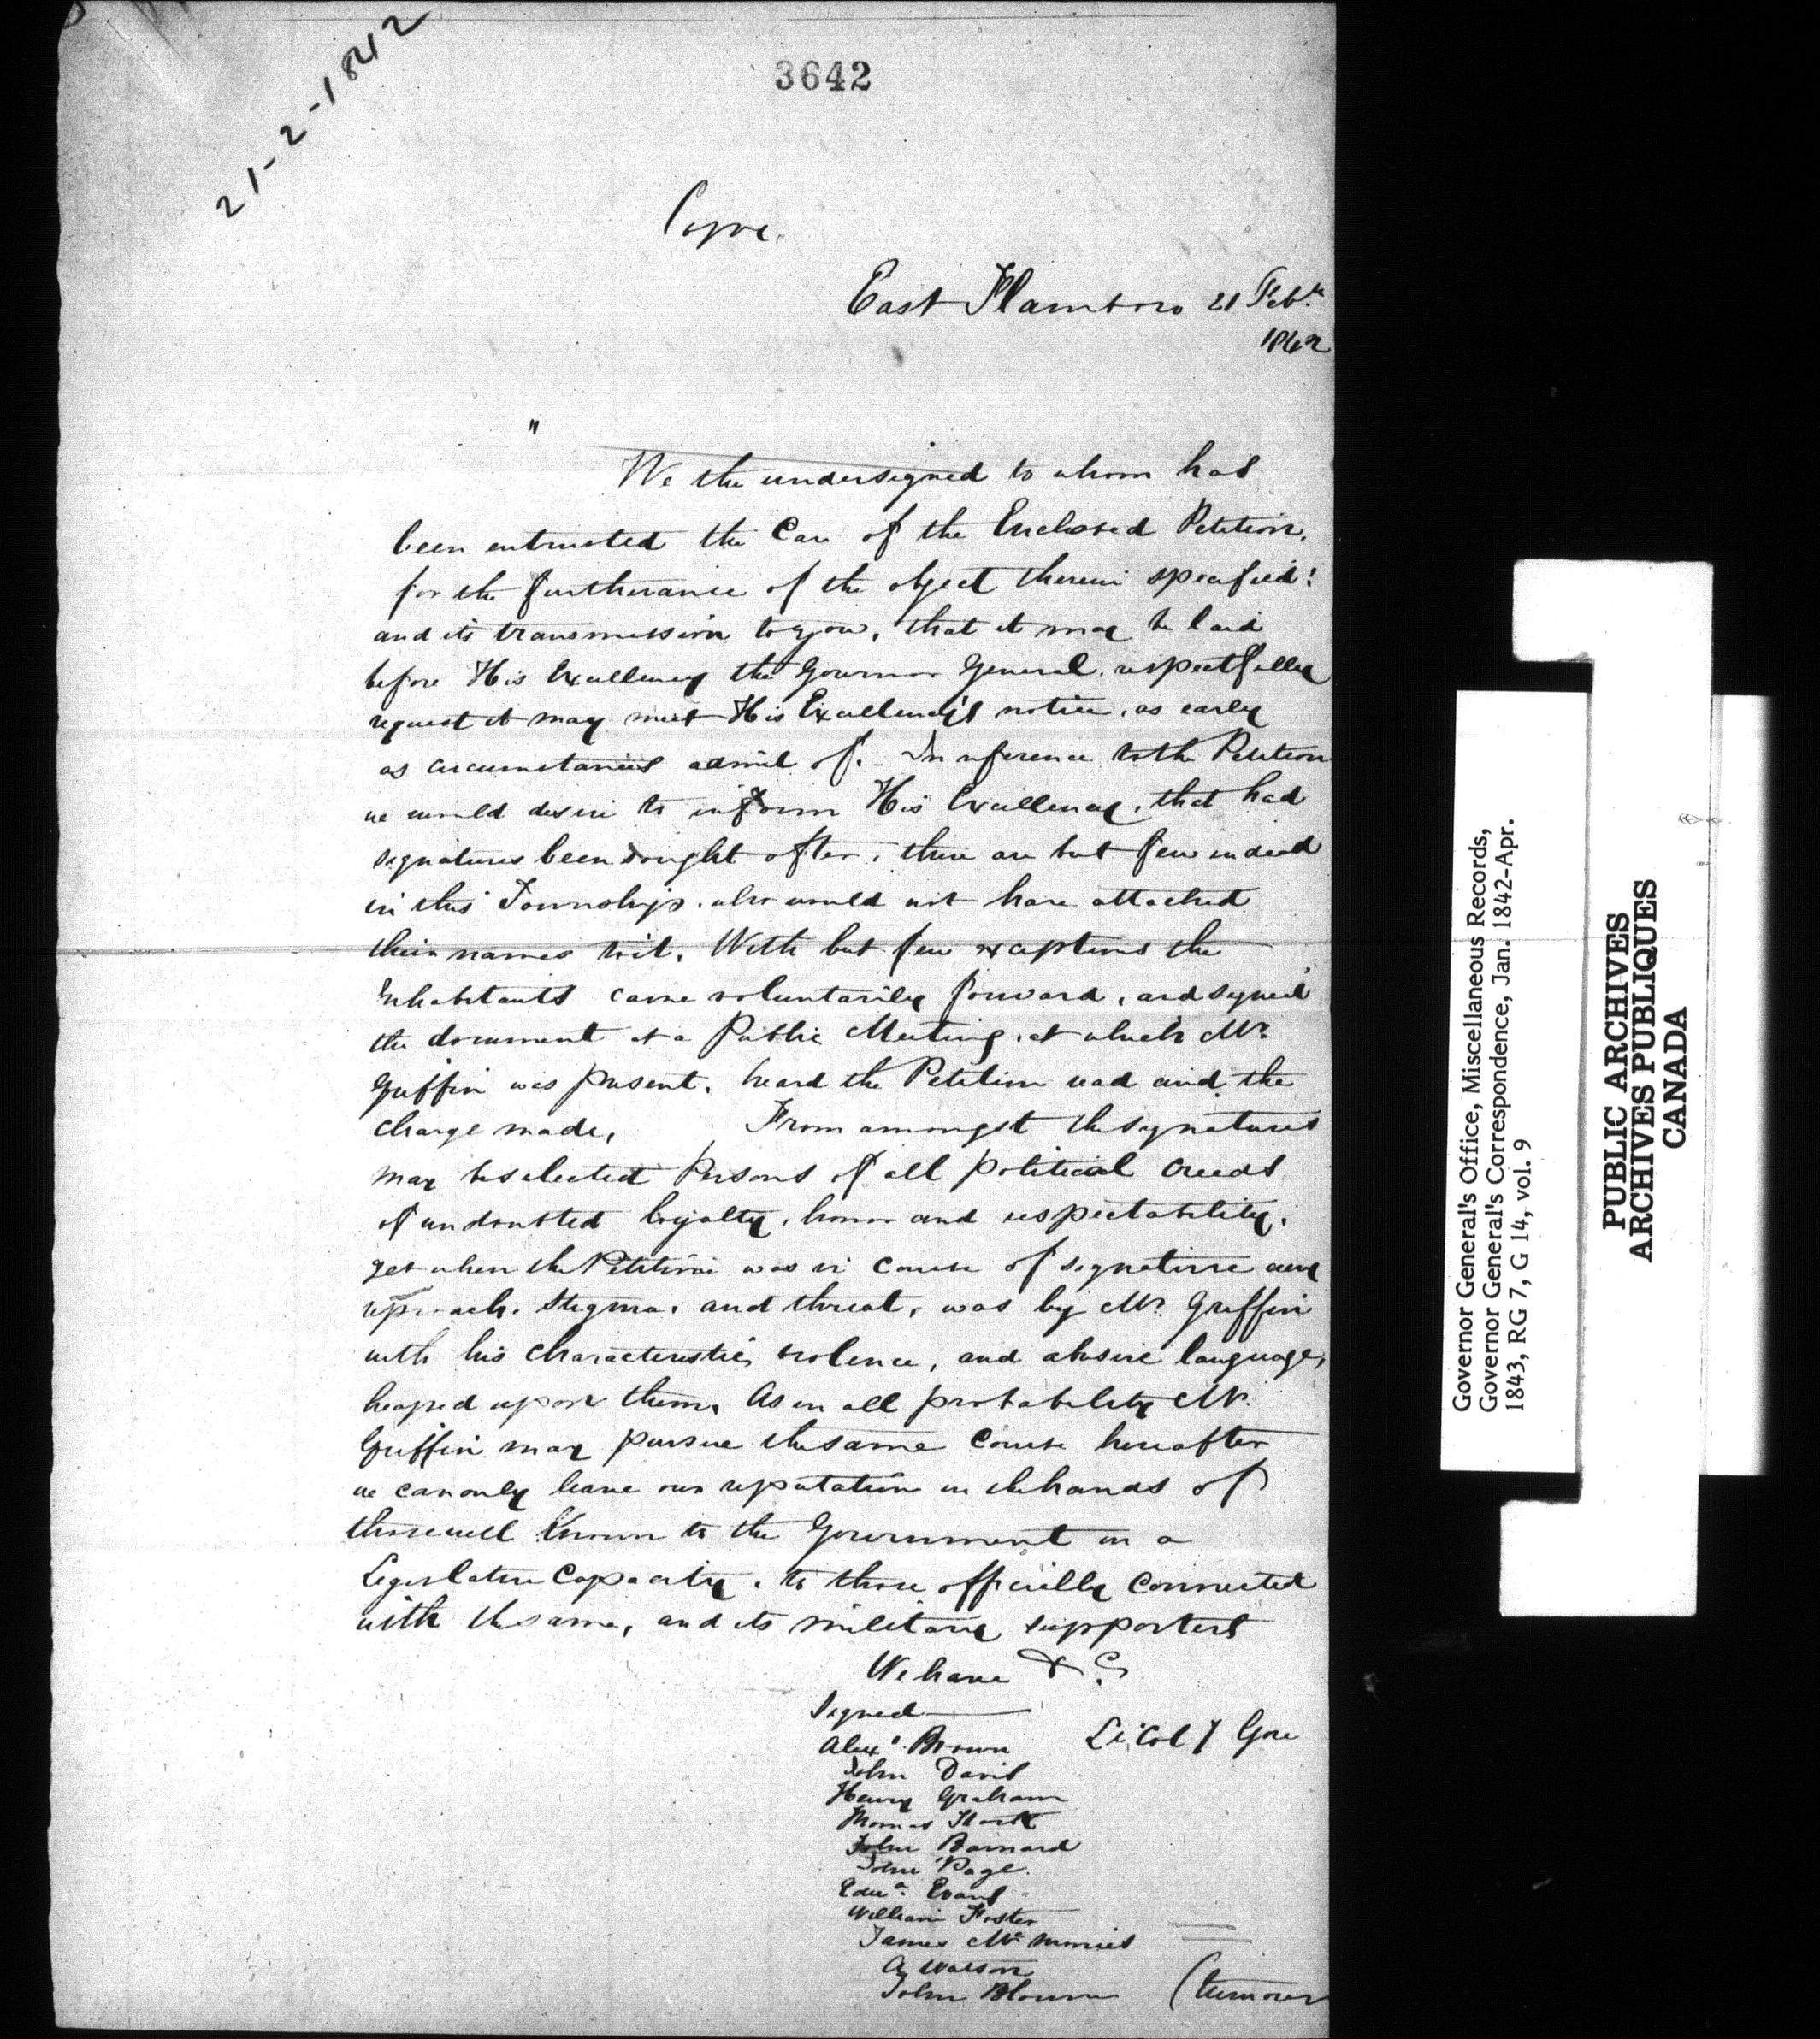 21-2-1842
3642
Copy
East Flamboro 21 Feby
1842
"
We the undersigned to whom has
been entrusted the Care of the Enclosed Petition,
for the furtherance of the object therein specified!
and its transmission to you, that it may be laid
before His Excellency the Governor General, respectfully
request it may meet His Excellency's notice, as early
as circumstances admit of. - In reference to the Petition
we would desire to inform His Excellency, that had
signatures been sought after, there are but few indeed
in this Township, who would not have attached
their names to it. With but few exceptions the
Inhabitants came voluntarily forward, and signed
the document at a Public Meeting, at which Mr.
Griffin was present, heard the Petition read and the
charge made, From amongst the signatures
may be selected Persons of all political Creeds
of undoubted loyalty, honor and respectability,
yet when the Petition was in Course of signature every
reproach, Stigma, and threat, was by Mr. Griffin
with his characteristic violence, and abusive language,
heaped upon them. As in all probability Mr.
Griffin may pursue the same Course hereafter
we can only leave our reputation in the hands of
those well Known to the Government in a
Legislative Capacity, to those officially Connected
with the same, and its military supporters
We have &c
Signed
Alexr. Brown Lt Col Gore
John Davis
Henry Graham
Thomas
John Barnard
John Page
Edwd. Evans
William Foster
James Mc
A Watson
John (turn over
Governor General's Office, Miscellaneous Records,
Governor General's Correspondence, Jan. 1842-Apr.
1843, RG 7, G 14, vol. 9
PUBLIC ARCHIVES
ARCHIVES PUBLIQUES
CANADA